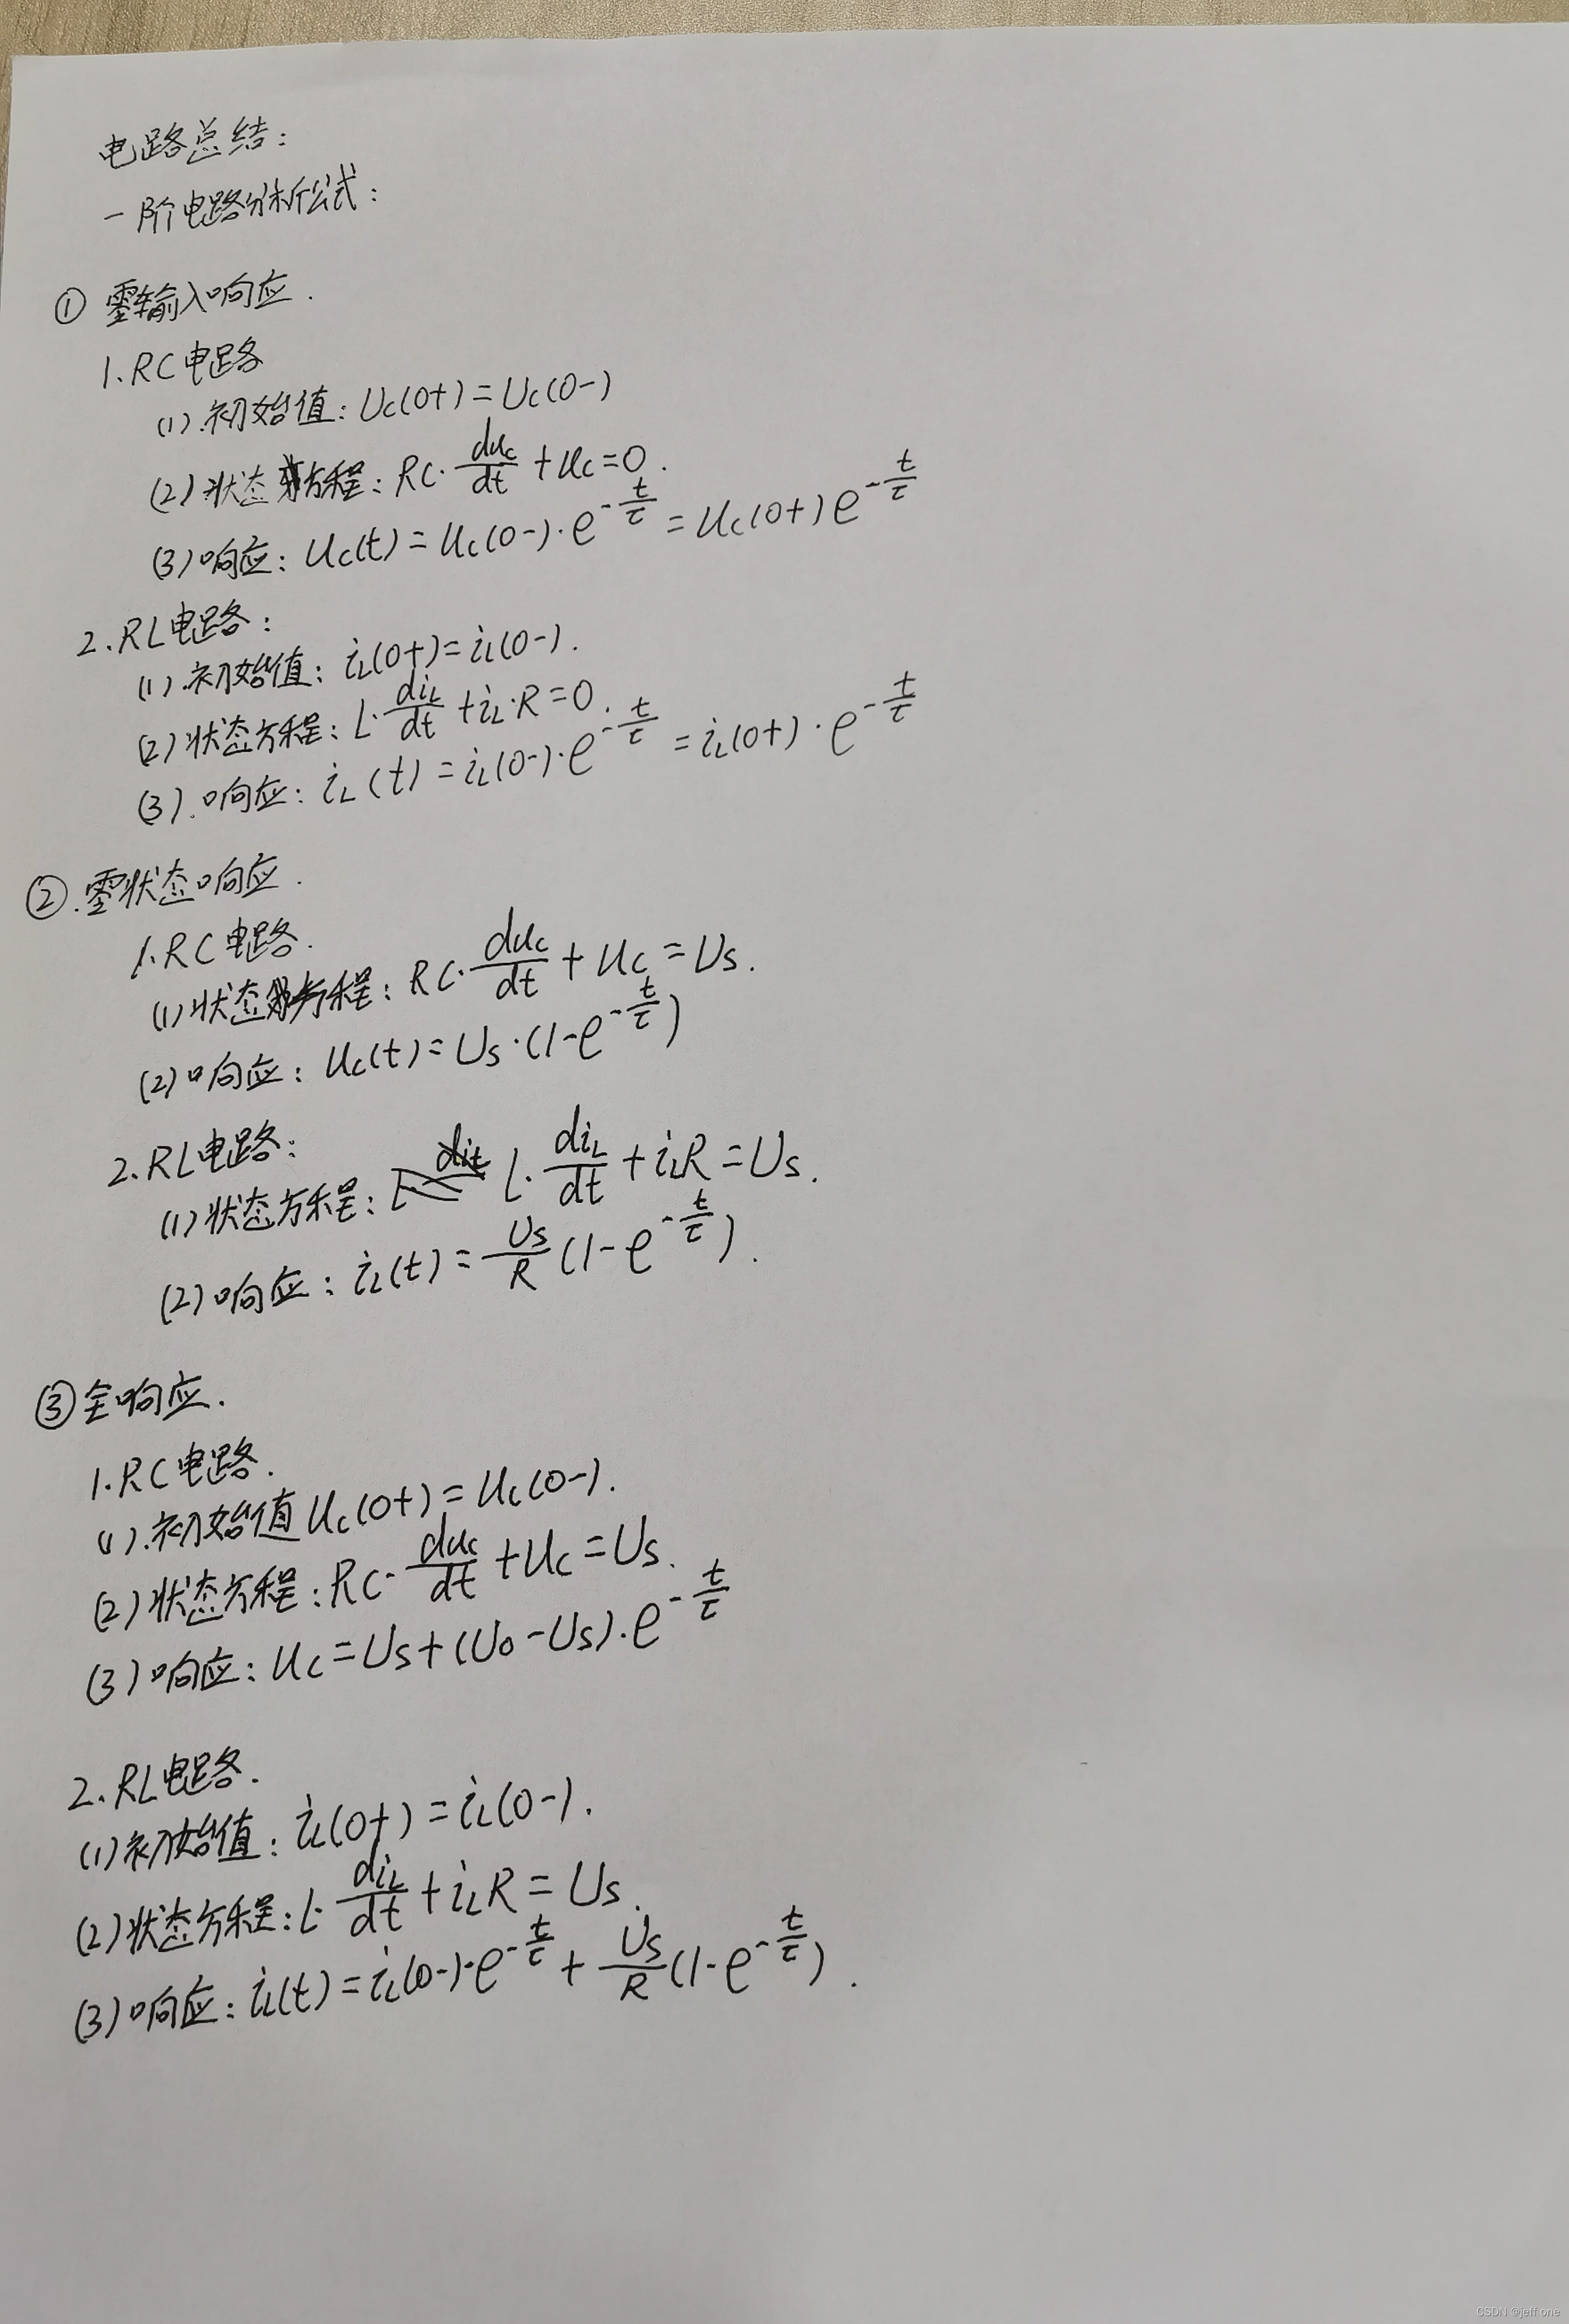 电路总结：
一阶电路分析公式：
① 零输入响应.
1. RC电路
(1).初始值: Uc(0+) = Uc(0-)
(2) 状态方程: RC·duc/dt + uc = 0.
(3) 响应: uc(t) = uc(0-)·e^(-t/τ) = uc(0+) e^(-t/τ)
2. RL电路:
(1).初始值: iL(0+) = iL(0-).
(2) 状态方程: L·diL/dt + iL·R = 0.
(3).响应: iL(t) = iL(0-)·e^(-t/τ) = iL(0+)·e^(-t/τ)
②.零状态响应.
1. RC电路.
(1) 状态方程: RC·duc/dt + uc = Us.
(2) 响应: uc(t) = Us·(1-e^(-t/τ))
2. RL电路:
(1) 状态方程: L·diL/dt + iLR = Us.
(2) 响应: iL(t) = Us/R (1-e^(-t/τ)).
③ 全响应.
1. RC电路.
(1).初始值 uc(0+) = uc(0-).
(2) 状态方程: RC·duc/dt + uc = Us.
(3) 响应: uc = Us + (U0-Us)·e^(-t/τ)
2. RL电路.
(1) 初始值: iL(0+) = iL(0-).
(2) 状态方程: L·diL/dt + iLR = Us.
(3) 响应: iL(t) = iL(0-)·e^(-t/τ) + Us/R (1-e^(-t/τ)).
CSDN @jeff one